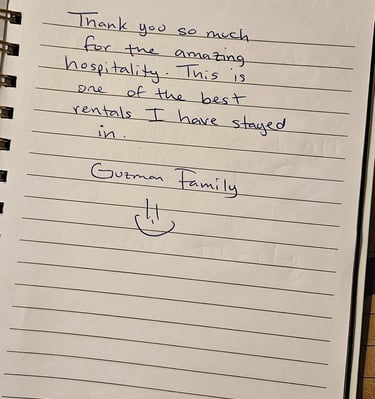 Thank you so much
for the amazing
hospitality. This is
one of the best
rentals I have stayed
in.
Guzman Family